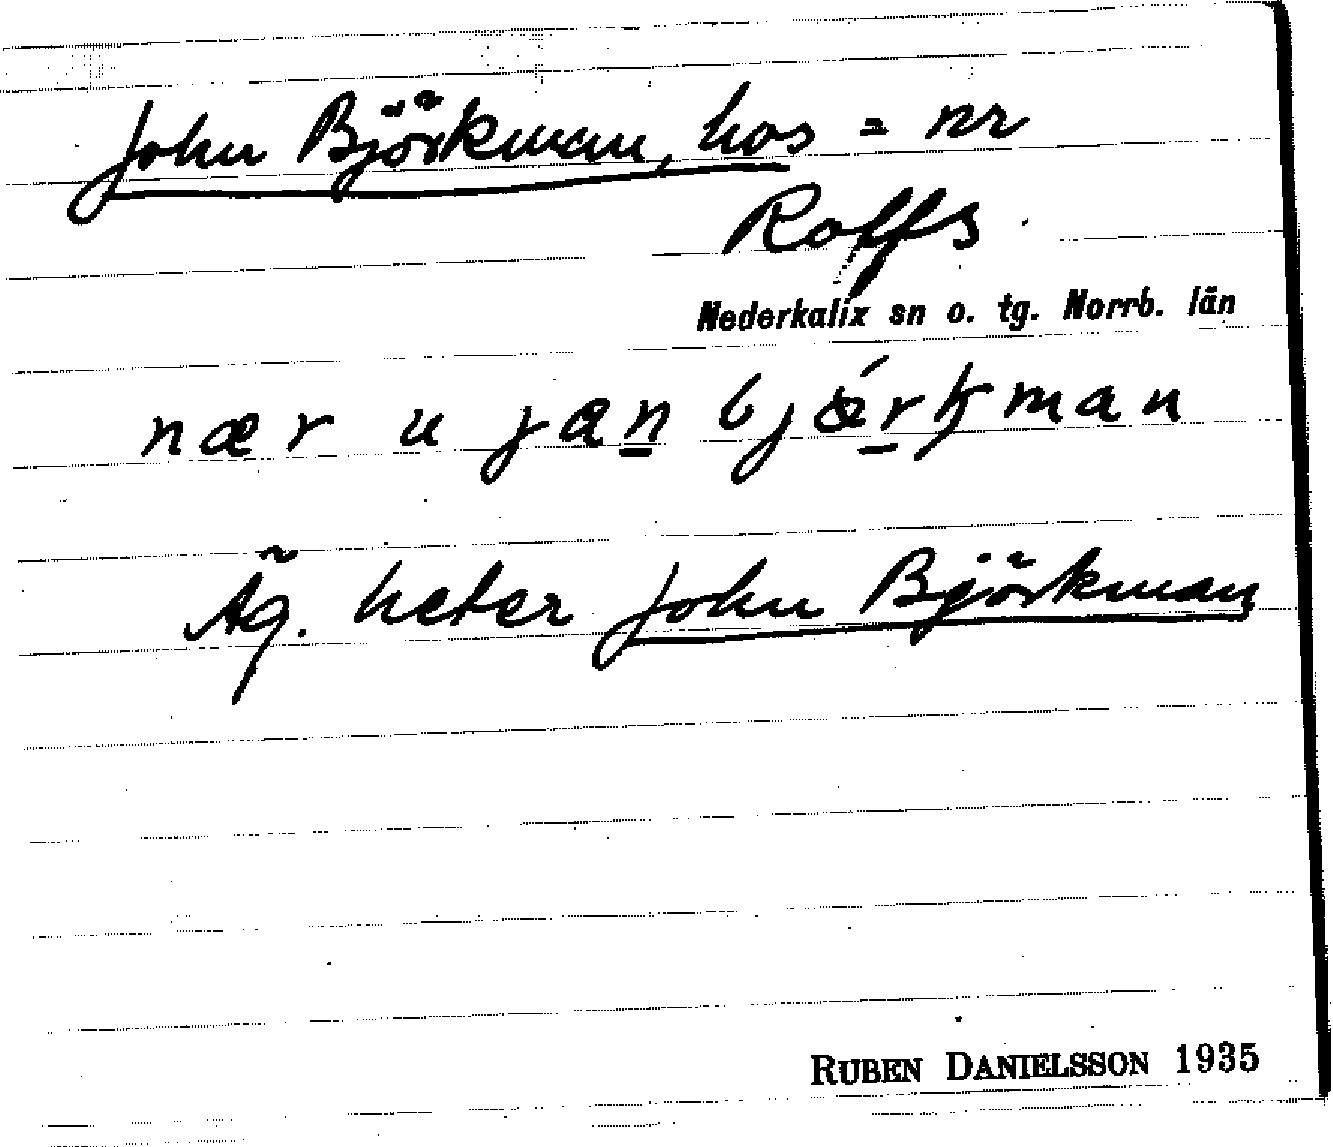 John Björkman, hos = nr
Rolfs
Nederkalix sn o. tg. Norrb. län
nær u jan bjǿrkman
Äg. heter John Björkman
RUBEN DANIELSSON 1935